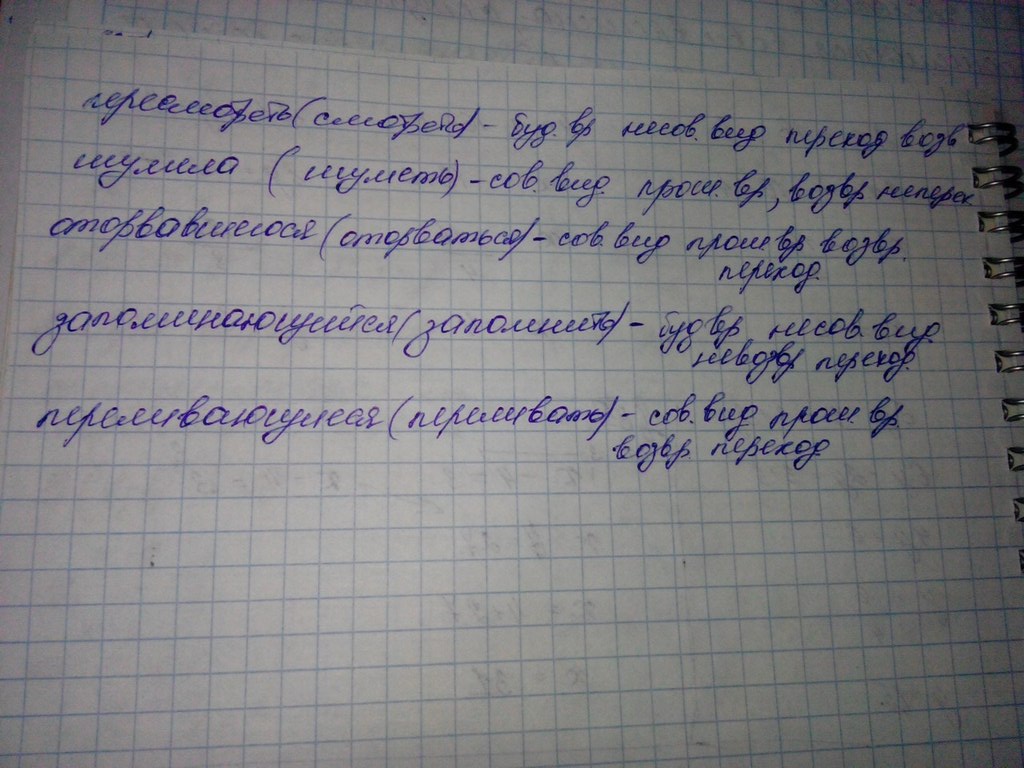 пересмотреть (смотреть) - буд. вр несов. вид переход возв
шумила (шуметь) - сов. вид. прош. вр, возвр неперех
оторвавшегося (оторваться) - сов. вид прош вр возвр.
переход.
запоминающийся (запомнить) - буд вр несов. вид
невозвр переход.
переливающиеся (переливать) - сов. вид прош. вр.
возвр. переход